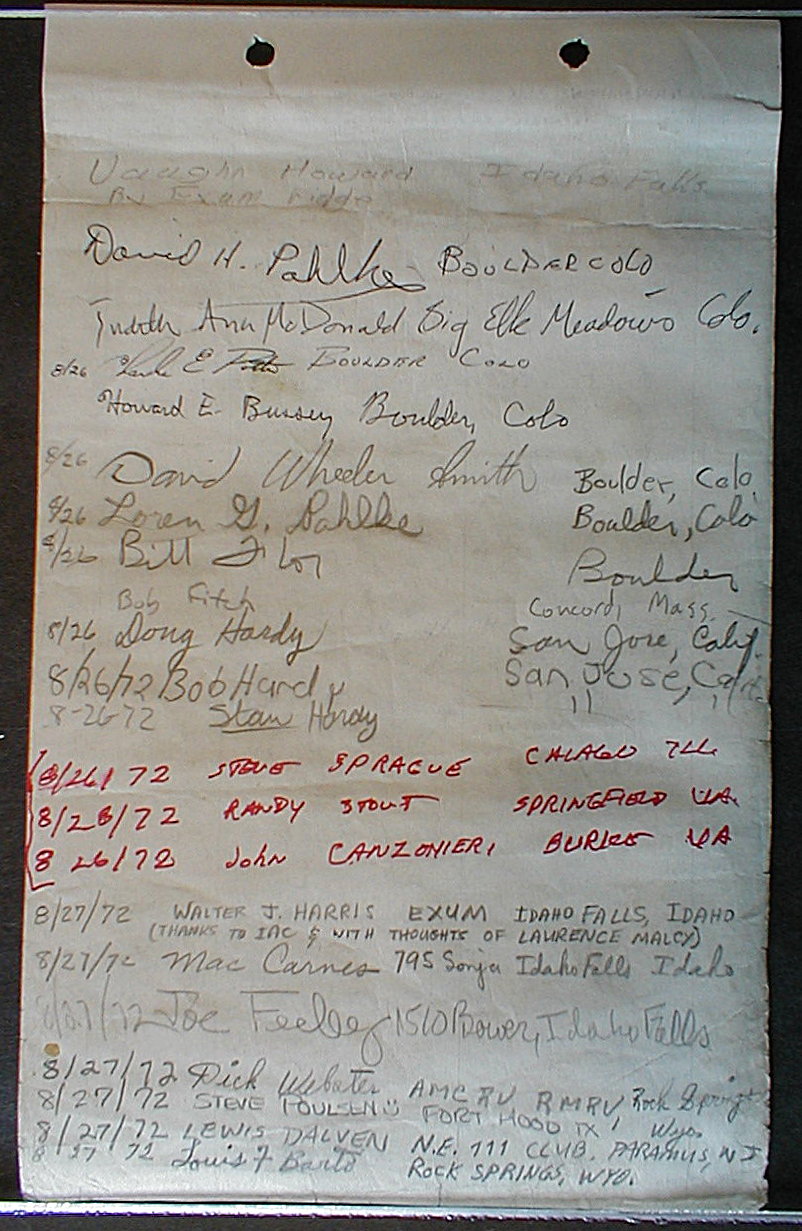 Vaughn Howard Idaho Falls
By Exam ridde
David H. Pahlke BOULDER COLO
Judith Ann McDonald Big Elk Meadows Colo.
8/26 E BOULDER COLO
Howard E. Bussey Boulder, Colo
8/26 David Wheeler Smith Boulder, Colo
8/26 Loren G. Pahlke Boulder, Colo
8/26 Bill Boulder
Bob Fitch Concord, Mass.
8/26 Doug Hardy San Jose, Calif.
8/26/72 Bob Hardy San Jose, Calif.
8-26-72 Stan Hardy " "
8/26/72 STEVE SPRAGUE CHIAGO ILL
8/28/72 RANDY STOUT SPRINGFIELD VA.
8 26/72 John CANZONIERI BURKE VA
8/27/72 WALTER J. HARRIS EXUM IDAHO FALLS, IDAHO
(THANKS TO IAC & WITH THOUGHTS OF LAURENCE MALCY)
8/27/72 Mac Carnes 795 Sonja Idaho Falls Idaho
8/27/72 Joe Feeley 1510 Bower, Idaho Falls
8/27/72 Dick Webster AMC RV RMRV Rock Springs Wyo.
8/27/72 STEVE POULSEN FORT HOOD TX
8/27/72 LEWIS DALVEN N.E. 111 CLUB. PARAMUS, NJ
8 27 72 Louis F Barto ROCK SPRINGS, WYO.